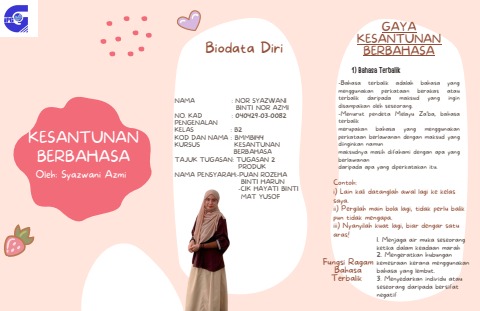 KESANTUNAN
BERBAHASA
Oleh: Syazwani Azmi
Biodata Diri
NAMA : NOR SYAZWANI
BINTI NOR AZMI
NO. KAD : 040429-03-0082
PENGENALAN
KELAS : B2
KOD DAN NAMA : BMMB1144
KURSUS KESANTUNAN
BERBAHASA
TAJUK TUGASAN: TUGASAN 2
PRODUK
NAMA PENSYARAH:-PUAN ROZEHA
BINTI HARUN
-CIK HAYATI BINTI
MAT YUSOF
GAYA
KESANTUNAN
BERBAHASA
1) Bahasa Terbalik
-Bahasa terbalik adalah bahasa yang
menggunakan perkataan berakas atau
terbalik daripada maksud yang ingin
disampaikan oleh seseorang.
-Menurut pendeta Melayu Za'ba, bahasa
terbalik
merupakan bahasa yang menggunakan
perkataan berlawanan dengan maksud yang
diinginkan namun
maksudnya masih difahami dengan apa yang
berlawanan
daripada apa yang diperkatakan itu.
Contoh:
i) Lain kali datanglah awal lagi ke kelas
saya.
ii) Pergilah main bola lagi, tidak perlu balik
pun tidak mengapa.
iii) Nyanyilah kuat lagi, biar dengar satu
aras!
Fungsi Ragam
Bahasa
Terbalik
1. Menjaga air muka seseorang
ketika dalam keadaan marah
2. Mengeratkan hubungan
kemesraan kerana menggunakan
bahasa yang lembut.
3. Menyedarkan individu atau
seseorang daripada bersifat
negatif